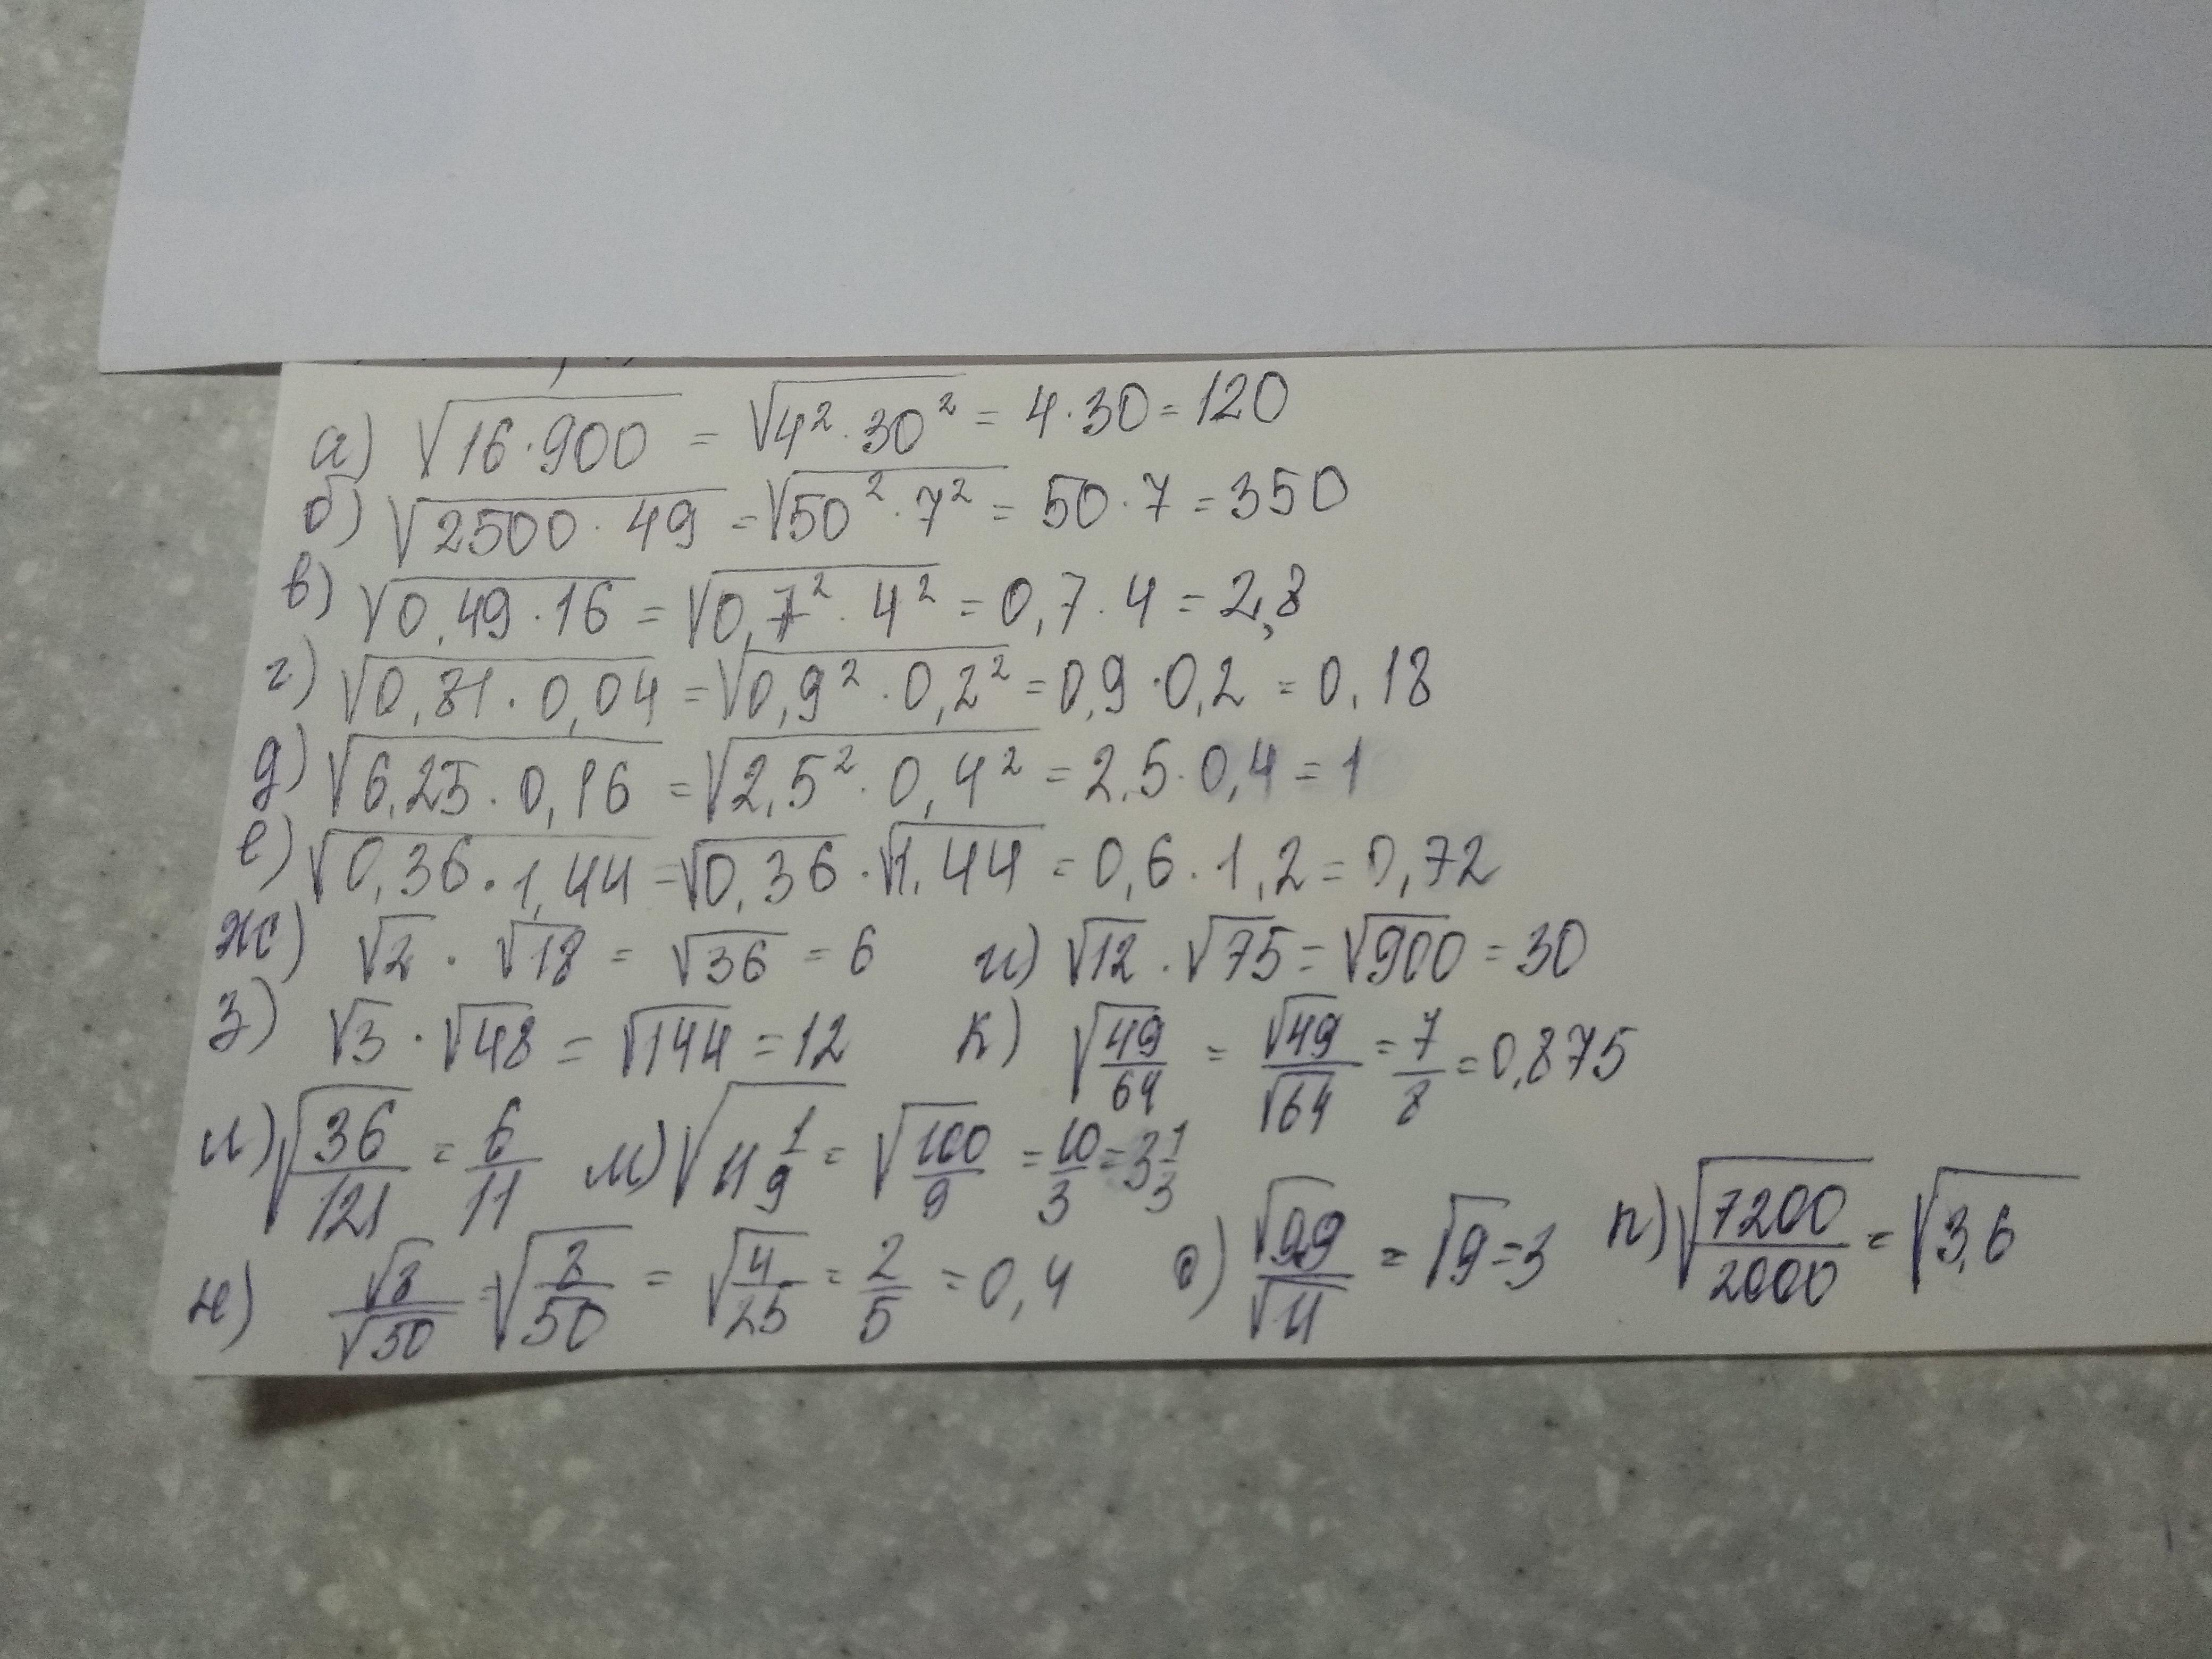 а) √16·900 = √4²·30² = 4·30 = 120
б) √2500·49 = √50²·7² = 50·7 = 350
в) √0,49·16 = √0,7²·4² = 0,7·4 = 2,8
г) √0,81·0,04 = √0,9²·0,2² = 0,9·0,2 = 0,18
д) √6,25·0,16 = √2,5²·0,4² = 2,5·0,4 = 1
е) √0,36·1,44 = √0,36·√1,44 = 0,6·1,2 = 0,72
ж) √2·√18 = √36 = 6 и) √12·√75 = √900 = 30
з) √3·√48 = √144 = 12 к) √49/64 = √49/√64 = 7/8 = 0,875
л) √36/121 = 6/11 м) √11 1/9 = √100/9 = 10/3 = 3 1/3
н) √8/√50 = √8/50 = √4/25 = 2/5 = 0,4 о) √99/√11 = √9 = 3 п) √7200/2000 = √3,6